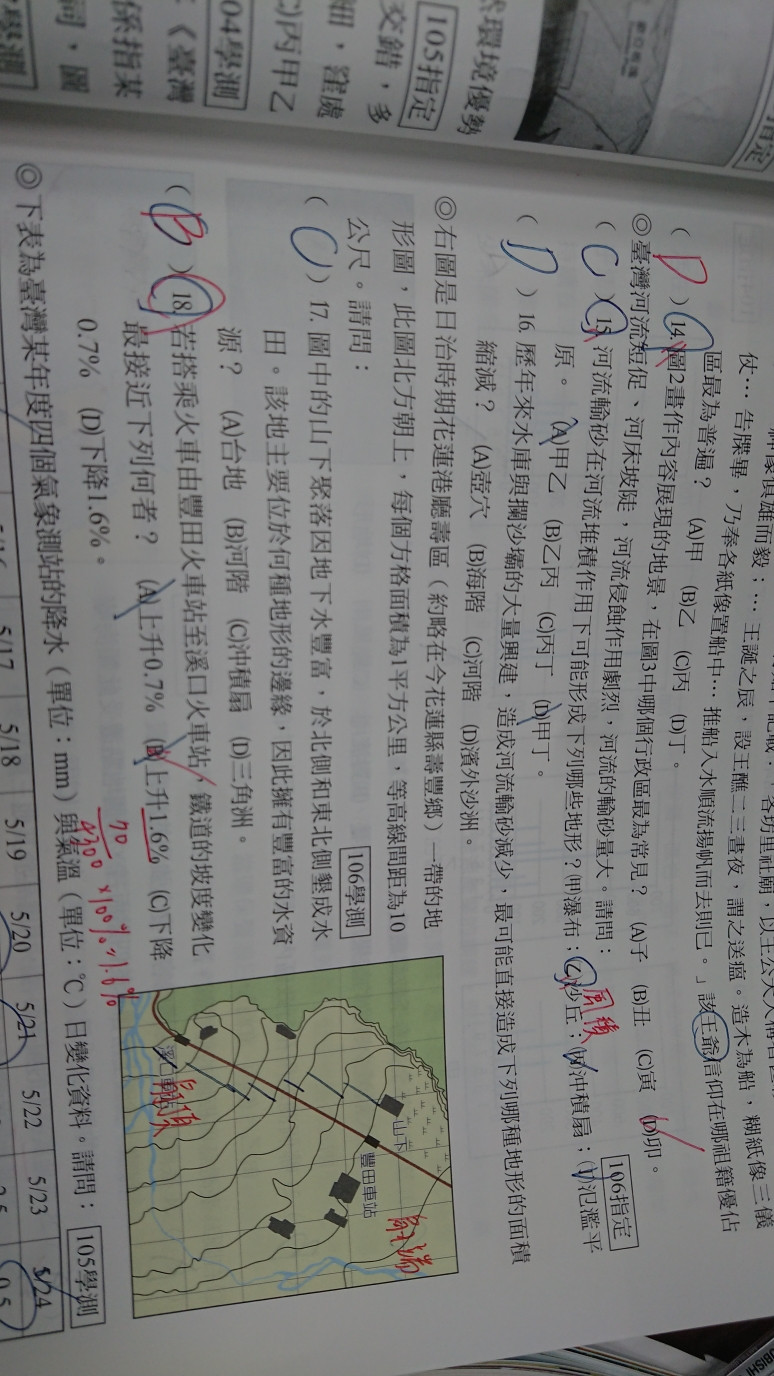 指定
然環境優勢
105指定
交錯，多
細，窪處
丙甲乙
04學測
《臺灣
係指某
同，圖
學測
神像俱雄而毅；… 王誕之辰，設王醮二三晝夜，謂之送瘟。造木為船，糊紙像三儀
仗… 告牒畢，乃奉各紙像置船中… 推船入水順流揚帆而去則已。」該王爺信仰在哪祖籍優佔
區最為普遍？ (A)甲 (B)乙 (C)丙 (D)丁。
( D ) 14. 圖2畫作內容展現的地景，在圖3中哪個行政區最為常見？ (A)子 (B)丑 (C)寅 (D)卯。
106指定
◎臺灣河流短促、河床坡陡，河流侵蝕作用劇烈，河流的輸砂量大。請問：
( C ) 15. 河流輸砂在河流堆積作用下可能形成下列哪些地形？(甲)瀑布；(乙)沙丘；(丙)沖積扇；(丁)氾濫平
原。 (A)甲乙 (B)乙丙 (C)丙丁 (D)甲丁。
( D ) 16. 歷年來水庫與攔沙壩的大量興建，造成河流輸砂減少，最可能直接造成下列哪種地形的面積
縮減？ (A)壺穴 (B)海階 (C)河階 (D)濱外沙洲。
◎右圖是日治時期花蓮港廳壽區（約略在今花蓮縣壽豐鄉）一帶的地
形圖，此圖北方朝上，每個方格面積為1平方公里，等高線間距為10
公尺。請問：
106學測
( C ) 17. 圖中的山下聚落因地下水豐富，於北側和東北側墾成水
田。該地主要位於何種地形的邊緣，因此擁有豐富的水資
源？ (A)台地 (B)河階 (C)沖積扇 (D)三角洲。
( B ) 18. 若搭乘火車由豐田火車站至溪口火車站，鐵道的坡度變化
最接近下列何者？ (A)上升0.7% (B)上升1.6% (C)下降
0.7% (D)下降1.6%。
70
4300 ×100%≒1.6%
山下
豐田車站
扇端
扇頂
◎下表為臺灣某年度四個氣象測站的降水（單位：mm）與氣溫（單位：℃）日變化資料。請問：
105學測
5/17 5/18 5/19 5/20 5/21 5/22 5/23 5/24
0.5